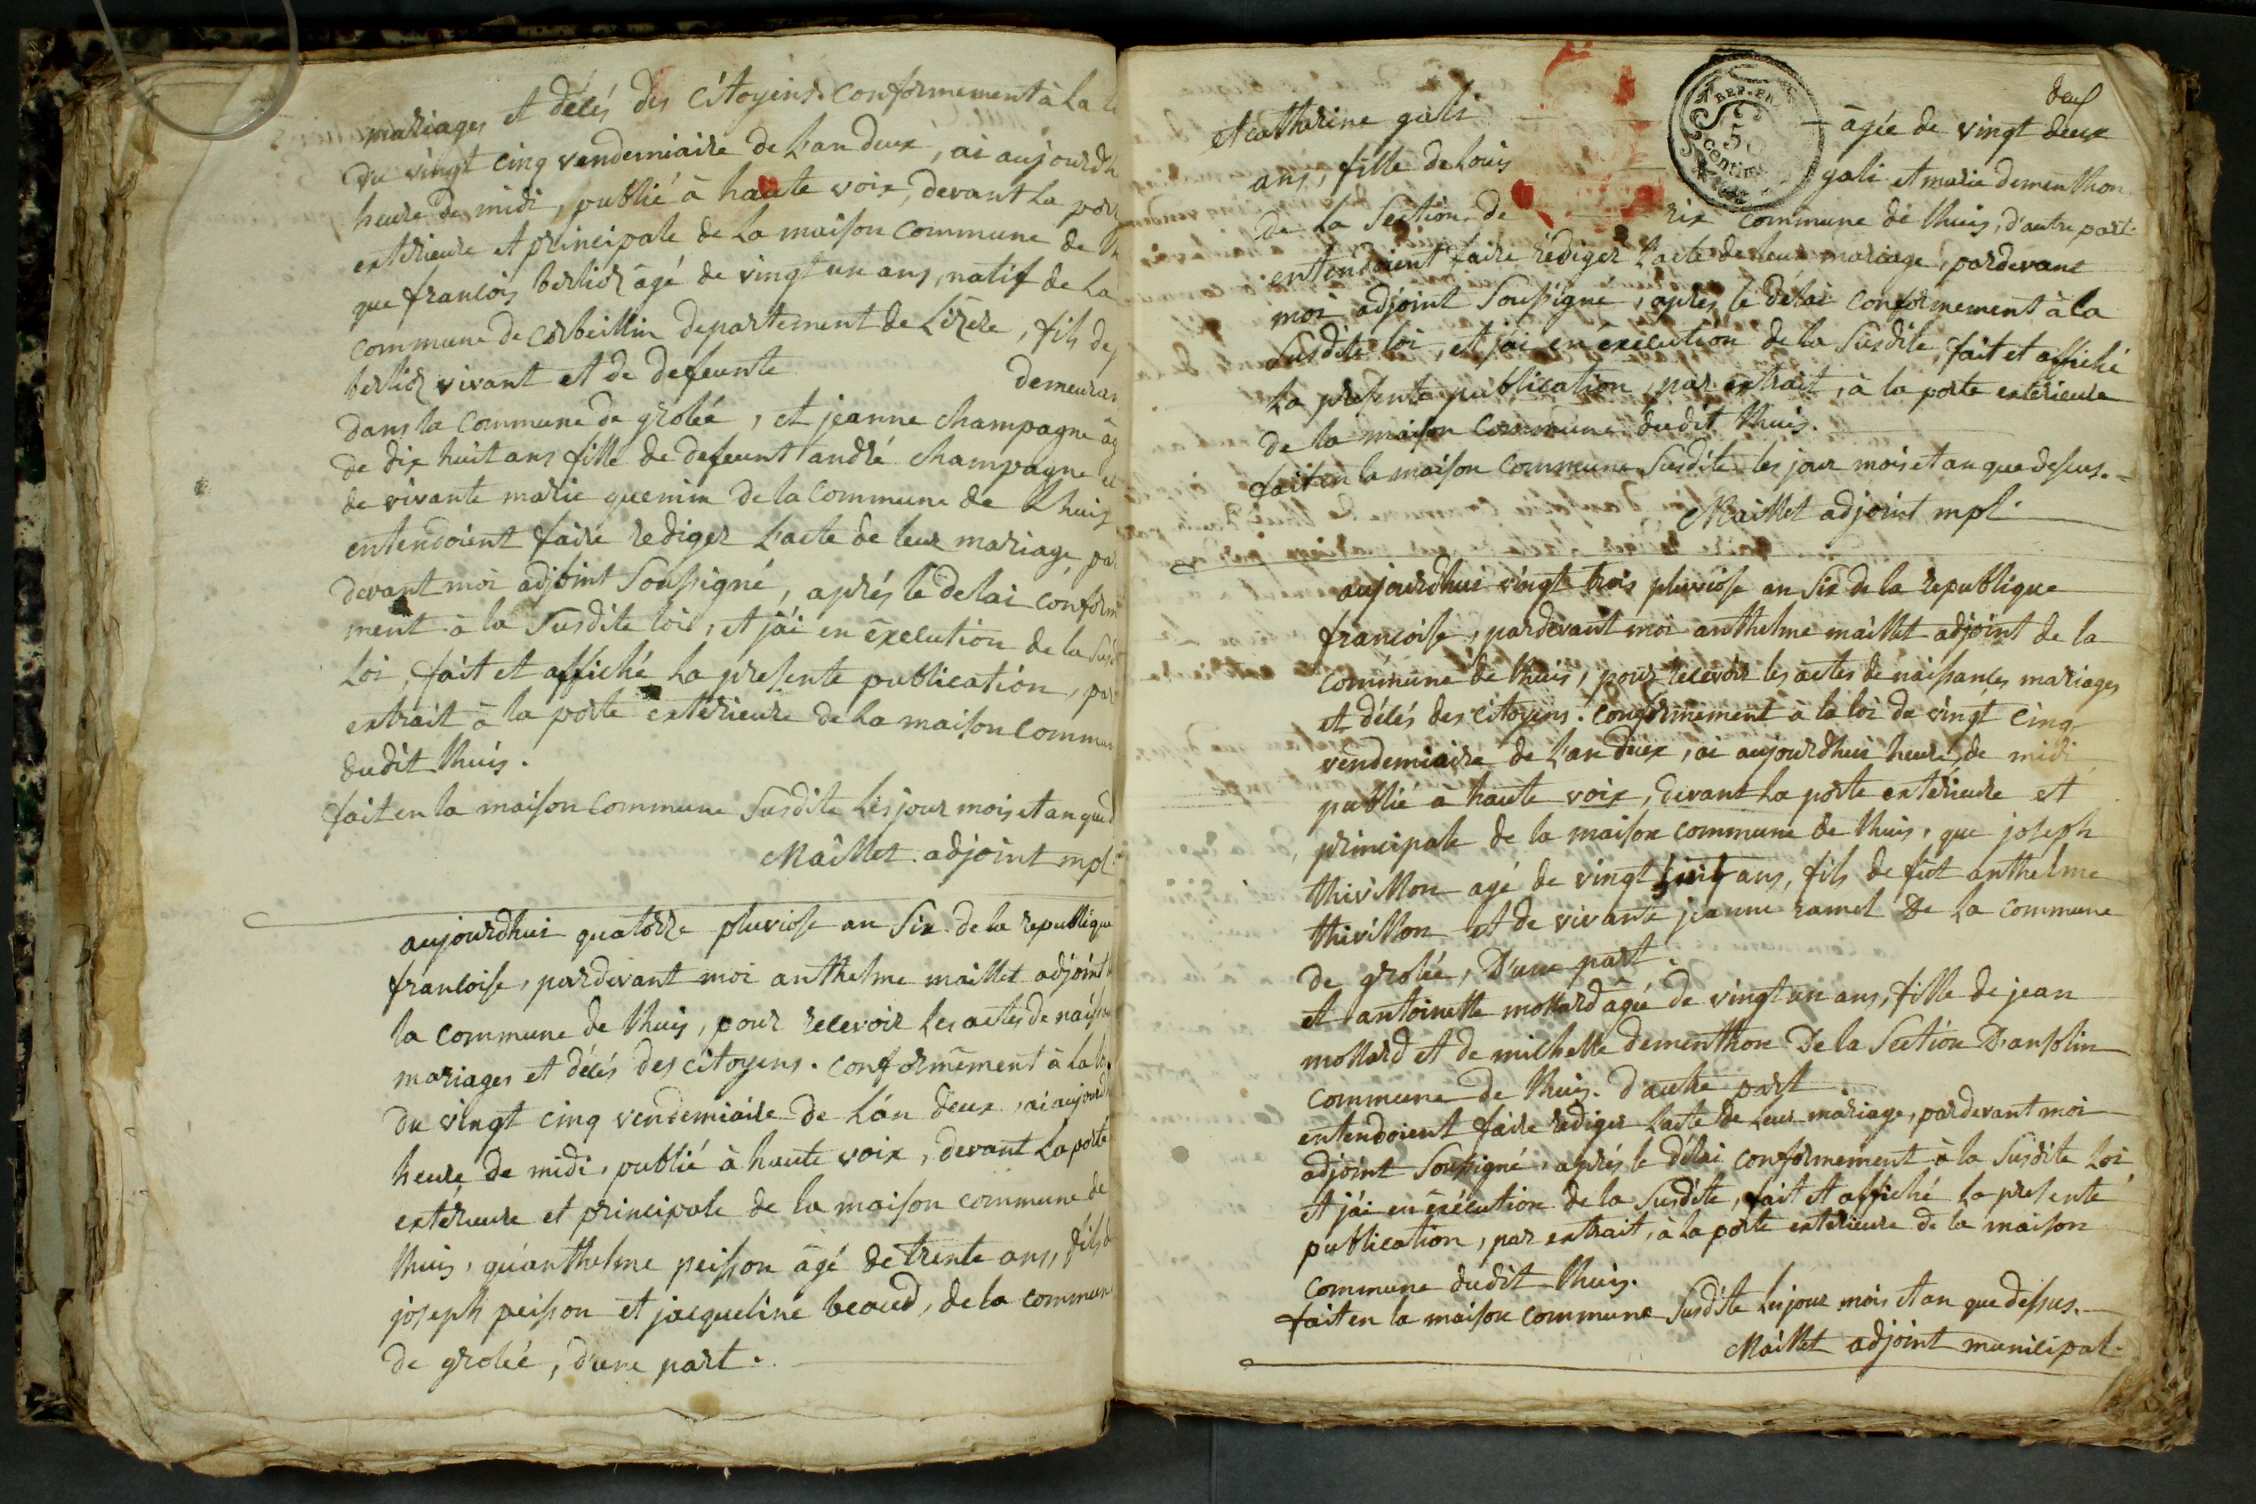 mariages et décés des citoyens. conformement à La
du vingt cinq vendemiaire de L'an deux, ai aujourdh
heure de midi, publié à haute voix, devant La por
exterieure et principale de La maison commune de
que francois berlior âgé de vingt un ans, natif de La
commune de corbeillin departement de Lizere, fils de
berlior vivant et de defeunte demeuran
dans la commune de grolée, et jeanne champagne âg
de dix huit ans fille de defeunt andré champagne et
de vivante marie quemin de la commune de Lhuis
entendoient faire rediger L'acte de leur mariage, par
devant moi adjoint Soussigné, aprés le delai conform
ment à la Susdite loi, et j'ai en éxecution de la Susd
Loi, fait et affiché La presente publication, par
extrait à la porte extérieure de La maison commun
dudit lhuis.
fait en la maison commune Susdite Les jour mois et an que d
Maillet adjoint mpl
aujourdhui quatorze pluviose an Six de la republique
francoise, pardevant moi anthelme maillet adjoint
la commune de lhuis, pour recevoir Les actes de naiss
mariages et décés des citoyens. conformément à La loi
du vingt cinq vendemiaire de L'an deux, ai aujourdh
heure de midi, publié à haute voix, devant La porte
extérieure et principale de la maison commune de
lhuis, qu'anthelme peisson âgé de trente ans, fils d
joseph peisson et jacqueline beaud, de la commune
de grolée, d'une part.
deux
REP. FRA
50
centimes
et catharine gali âgée de vingt deux
ans, fille de Louis gali et marie dementhon
de la Section de rix commune de lhuis, d'autre part
entendoient faire rédiger L'acte de leur mariage, pardevant
moi adjoint Soussigné, aprés le délai conformement à la
Susdite loi, et j'ai en éxécution de la Susdite, fait et affiché
La presente publication, par extrait, à la porte extérieure
de la maison commune dudit lhuis.
fait en la maison commune Susdite les jour mois et an que dessus.
Maillet adjoint mpl
aujourdhui vingt trois pluviose an Six de la republique
francoise, pardevant moi anthelme maillet adjoint de la
commune de lhuis, pour recevoir les actes de naissances mariages
et décés des citoyens. conformément à la loi du vingt cinq
vendemiaire de L'an deux, ai aujourdhui heure de midi
publié a haute voix, devant La porte extérieure et
principale de la maison commune de lhuis, que joseph
thivillon agé de vingt huit ans, fils de fut anthelme
thivillon et de vivante jeanne ramel De La commune
de grolée, D'une part.
et antoinette mollard âgée de vingt un ans, fille de jean
mollard et de michelle dementhon De la Section D'ansolin
commune de lhuis. d'autre part
entendoient faire rediger L'acte de Leur mariage, pardevant moi
adjoint Soussigné, aprés le délai conformement à la Susdite Loi
et j'ai en éxécution de la Susdite, fait et affiché La presente
publication, par extrait, à La porte extérieure de la maison
commune dudit lhuis.
fait en la maison commune Susdite Les jour mois et an que dessus.
Maillet adjoint municipal.